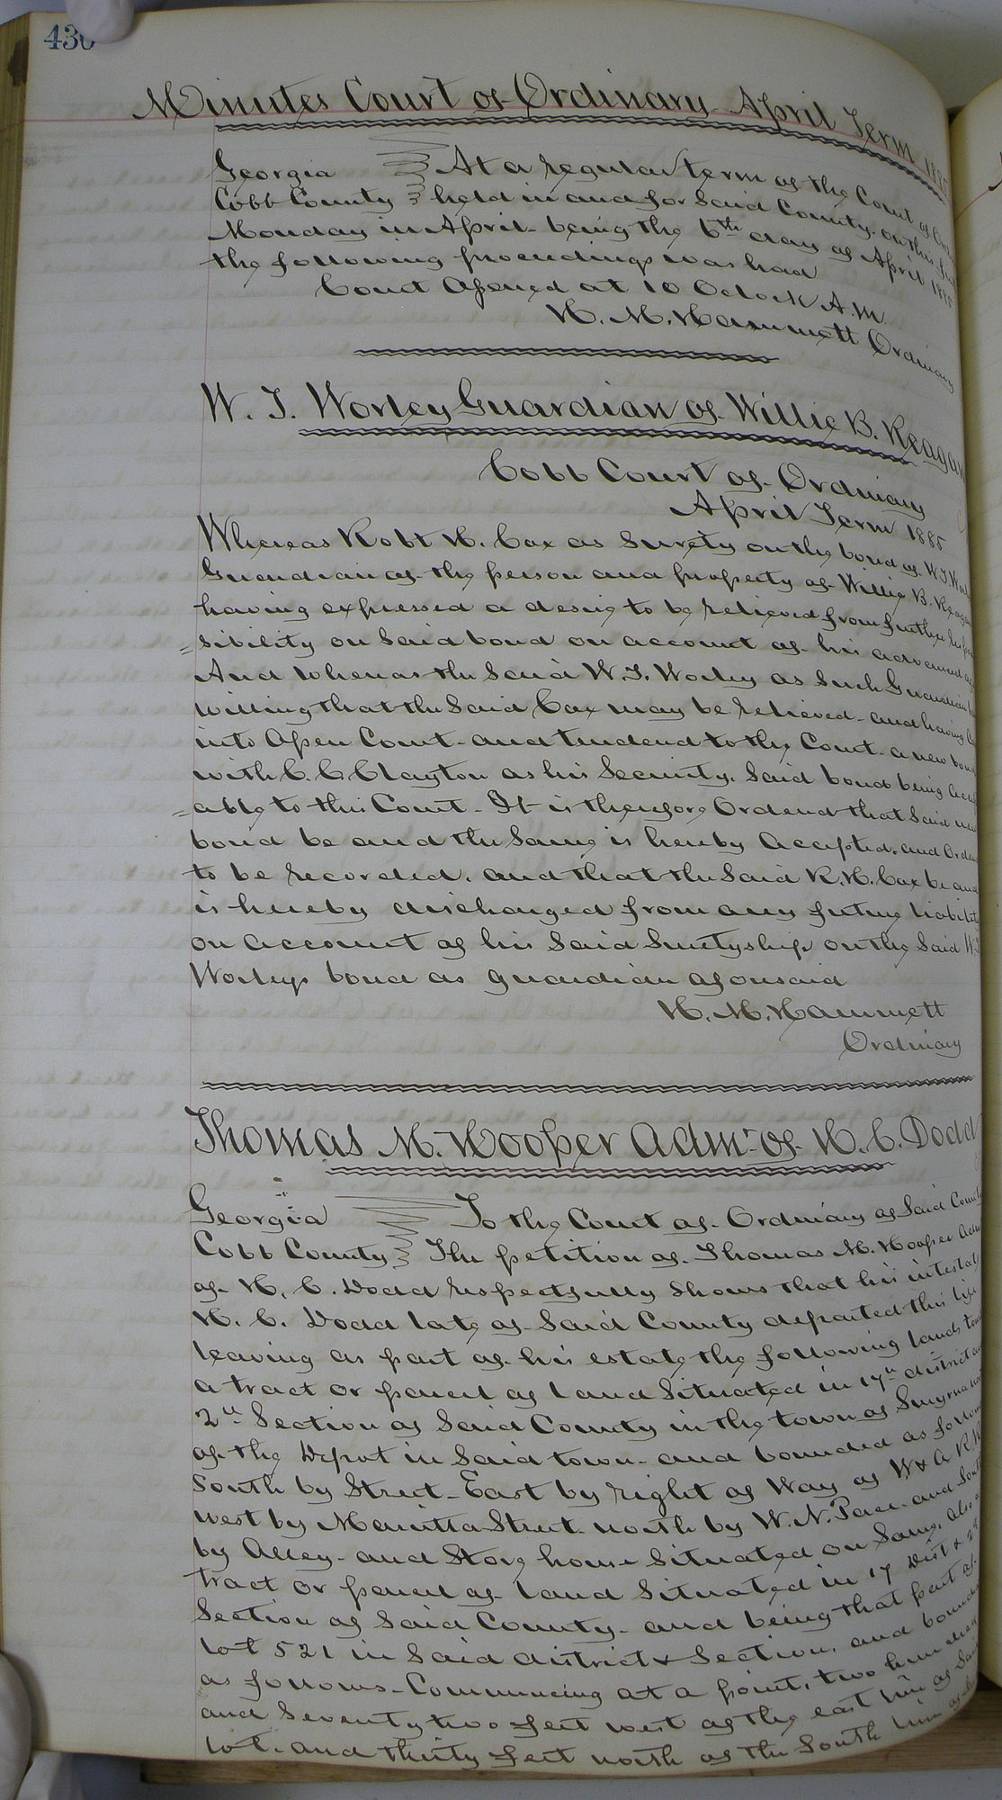 430
Minutes Court of Ordinary April Term 1885
Georgia At a regular term of the Court of
Cobb County held in and for Said County on this
Monday in April being the 6th day of April 1885
the following proceedings was had
Court Opened at 10 Oclock A.M.
H. M. Hammett Ordinary
W. J. Worley Guardian of Willie B. Reagan
Cobb Court of Ordinary
April Term 1885
Whereas Robt H. Cox as Surety on the bond of W.J.
Guardian of the person and property of Willie B. Reagan
having expressed a desire to be relieved from further
sibility on Said bond on account of his advanced age
And whereas the Said W. J. Worley as Such Guardian
willing that the Said Cox may be relieved and having
into Open Court and tendered to the Court a new bond
with C. C. Clayton as his Security. Said bond being
able to this Court It is therefore Ordered that Said new
bond be and the Same is hereby Accepted. and
to be recorded. and that the Said R. H. Cox be and
is hereby discharged from any future liability
on account of his Said Suretyship on the Said W.
Worleys bond as guardian aforesaid
H. M. Hammett
Ordinary
Thomas M. Hooper Admr of H. C. Dodd
Georgia To the Court of Ordinary of Said County
Cobb County The petition of Thomas M. Hooper
of H. C. Dodd respectfully Shows that his intestate
H. C. Dodd late of Said County departed this life
leaving as part of his estate the following lands
a tract or parcel of land Situated in 17th district
2nd Section of Said County in the town of Smyrna
of the Depot in Said town and bounded as
South by Street East by right of Way of W & A R.R.
west by Marietta Street north by W. N. Pace and
by Alley and Store house Situated on Same, also
tract or parcel of land Situated in 17 Dist & 2nd
Section of Said County and being that part of
lot 521 in Said district & Section. and
as follows Commencing at a point, two hundred
and Seventy two feet west of the east line of Said
lot. and thirty feet north of the South line